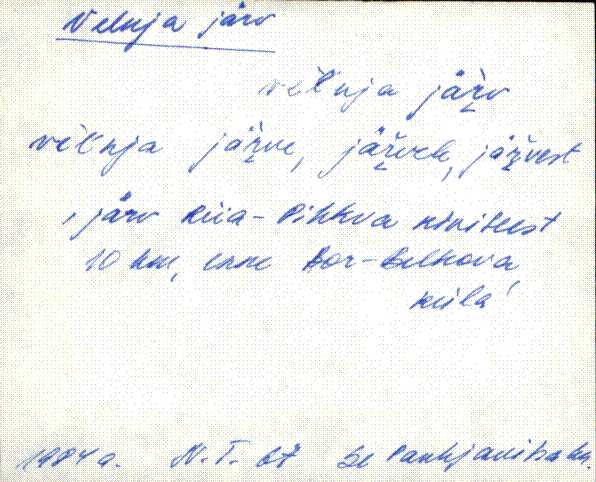 Velnja järv
vel̆nja jär̮v
vel̆nja jär̮ve, jär̮vele, jär̮vest
'järv Riia-Pihkva kiviteest
10 km, enne Bor-Belkova
küla'
1984 a. N.T. 67 Se